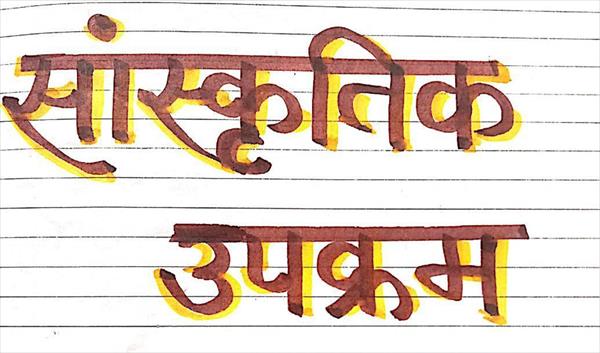 सांस्कृतिक
उपक्रम